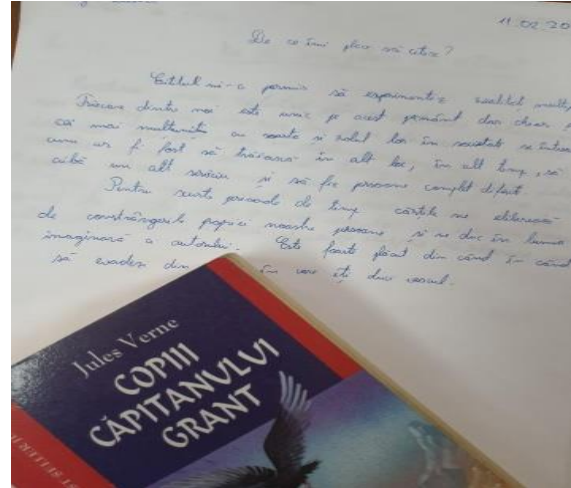 11.02.20
De ce îmi place să citesc?
Cititul mi-a permis să experimentez realități
Fiecare dintre noi este unic pe acest pământ dar chiar
cei mai mulțumiți cu soarta și rolul lor în societate se
cum ar fi fost să trăiască în alt loc, în alt timp, să
aibă un alt serviciu și să fie persoane complet diferit.
Pentru scurte perioade de timp cărțile ne eliberează
de constrângerile propriei noastre persoane și ne duc în lumea
imaginară a autorului. Este foarte plăcut din când în când
să evadezi din în care îți duci veacul.
Jules Verne
COPIII
CĂPITANULUI
GRANT